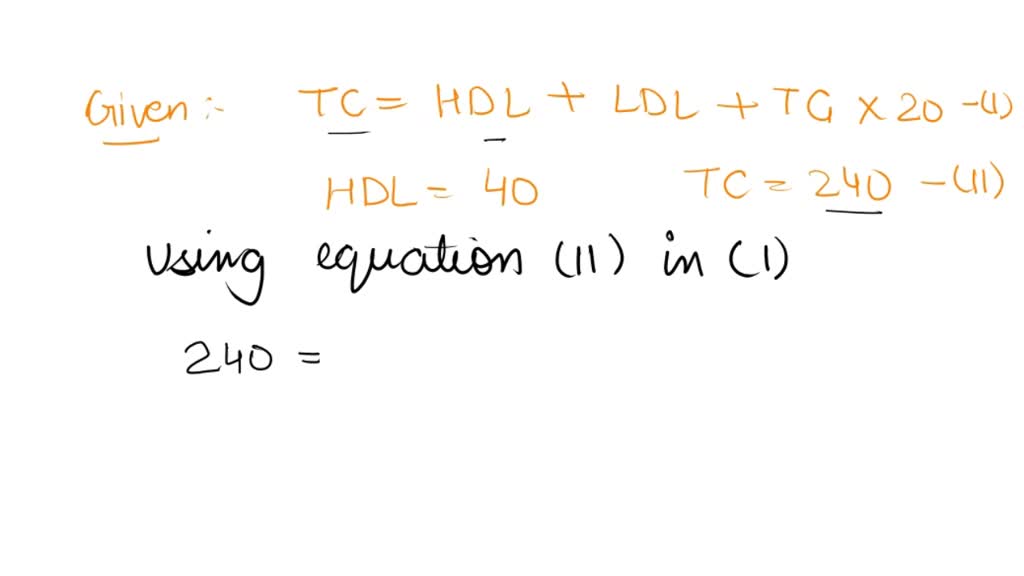 Given :- TC = HDL + LDL + TG × 20 -(I)
HDL = 40 TC = 240 -(II)
using equation (II) in (I)
240 =